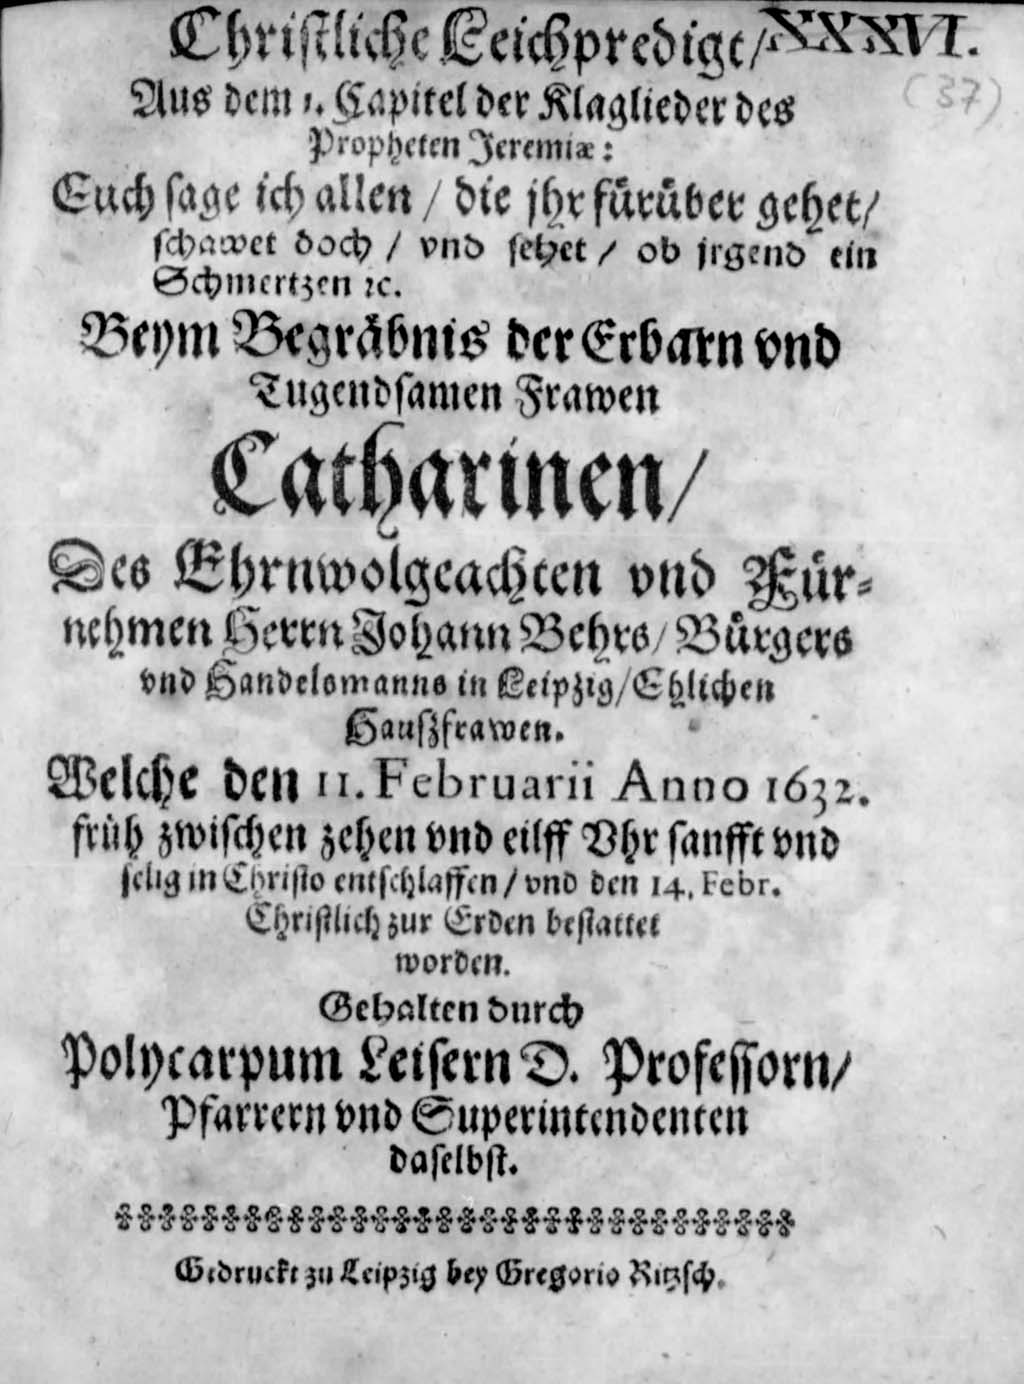 Christliche Leichpredigt/ XXXVI.
(37)
Aus dem 1. Capitel der Klaglieder des
Propheten Jeremiæ:
Euch sage ich allen / die jhr fürüber gehet/
schawet doch / vnd sehet / ob jrgend ein
Schmertzen ꝛc.
Beym Begräbnis der Erbarn vnd
Tugendsamen Frawen
Catharinen/
Des Ehrnwolgeachten vnd Für-
nehmen Herrn Johann Behrs/ Bürgers
vnd Handelsmanns in Leipzig/ Ehlichen
Haußfrawen.
Welche den 11. Februarii Anno 1632.
früh zwischen zehen vnd eilff Vhr sanfft vnd
selig in Christo entschlaffen/ vnd den 14. Febr.
Christlich zur Erden bestattet
worden.
Gehalten durch
Polycarpum Leisern D. Professorn/
Pfarrern vnd Superintendenten
daselbst.
Gedruckt zu Leipzig bey Gregorio Ritzsch.